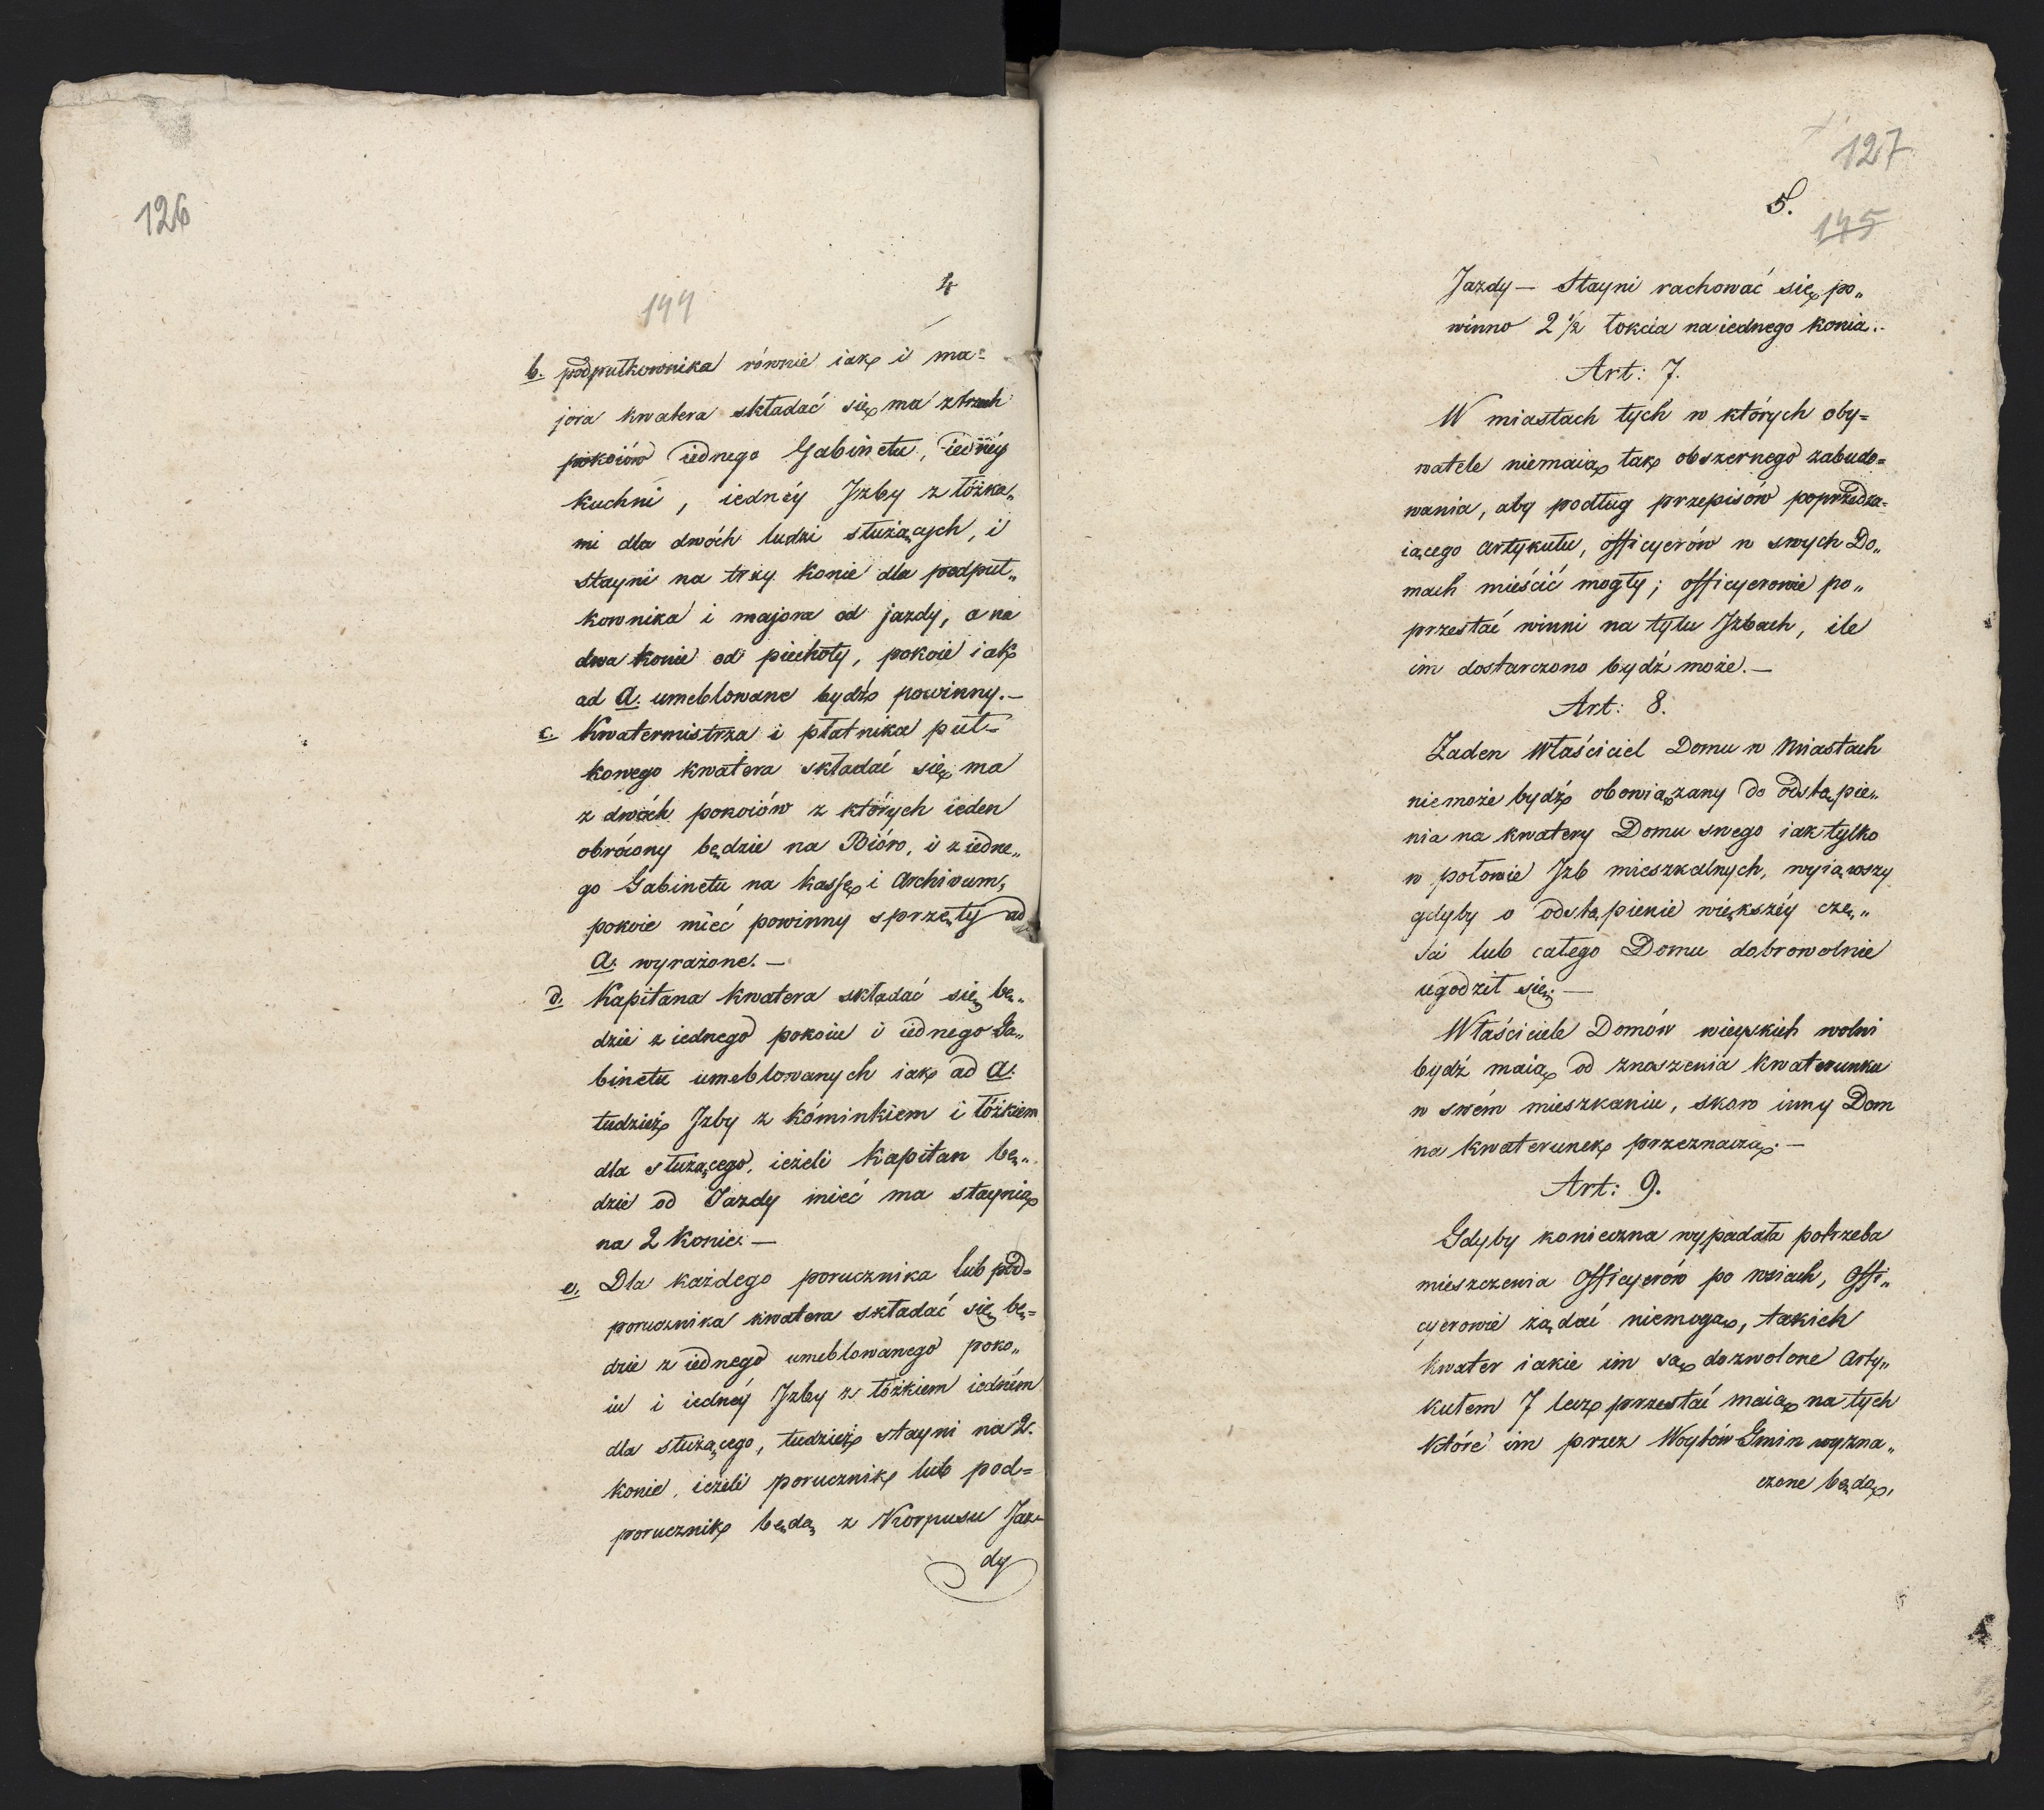 126
144
4
b. podpułkownika równie iak i ma=
jora kwatera składać się ma z trzech
pokoiów iednego Gabinetu, iednéy
kuchni, iednéy Jzby z łóżka„
mi dla dwóch ludzi służących, i
stayni na trzy konie dla podpuł„
kownika i majora od jazdy, a na
dwa konie od piechoty, pokoie iak
ad a. umeblowane bydź powinny.—
c. Kwatermistrza i płatnika puł=
kowego kwatera składać się ma
z dwóch pokoiów z których ieden
obrócony będzie na Bióro, i z iedne„
go Gabinetu na kassę i Archivum,
pokoie mieć powinny sprzęty ad
a. wyrażone.—
d. Kapitana kwatera składać się bę„
dzie z iednego pokoiu i iednego Ga„
binetu umeblowanych iak ad a.
tudzież Jzby z kóminkiem i łóżkiem
dla służącego, ieżeli Kapitan bę„
dzie od Jazdy mieć ma staynią
na 2 konie.—
e. Dla każdego porucznika lub pod=
porucznika kwatera składać się bę=
dzie z iednego umeblowanego poko„
iu i iednéy Jzby z łóżkiem iedném
dla służącego, tudzież stayni na 2.
konie, ieżeli porucznik lub pod=
porucznik będą z Korpusu Jaz=
dy
127
5.
145
Jazdy — Stayni rachować się po„
winno 2 1/2 łokcia na iednego konia.
Art: 7.
W miastach tych w których oby=
watele niemaią tak obszernego zabudo=
wania, aby podług przepisów poprzedza=
iącego artykułu, officyerów w swych Do„
mach mieścić mogły; officyerowie po„
przestać winni na tylu Jzbach, ile
im dostarczono bydź może.—
Art: 8.
Żaden Właściciel Domu w Miastach
niemoże bydź obowiązany do odstąpie„
nia na kwatery Domu swego iak tylko
w połowie Jzb mieszkalnych, wyiąwszy
gdyby o odstąpienie większéy czę„
ści lub całego Domu dobrowolnie
ugodził się.—
Właściciele Domów wieyskich wolni
bydź maią od znaszenia kwaterunku
w swém mieszkaniu, skoro inny Dom
na kwaterunek przeznaczą.—
Art: 9.
Gdyby konieczna wypadała potrzeba
mieszczenia Officyerów po wsiach, Offi„
cyerowie żądać niemogą, takich
kwater iakie im są dozwolone Arty„
kułem 7 lecz przestać maią na tych
które im przez Woytów Gmin wyzna„
czone będą,